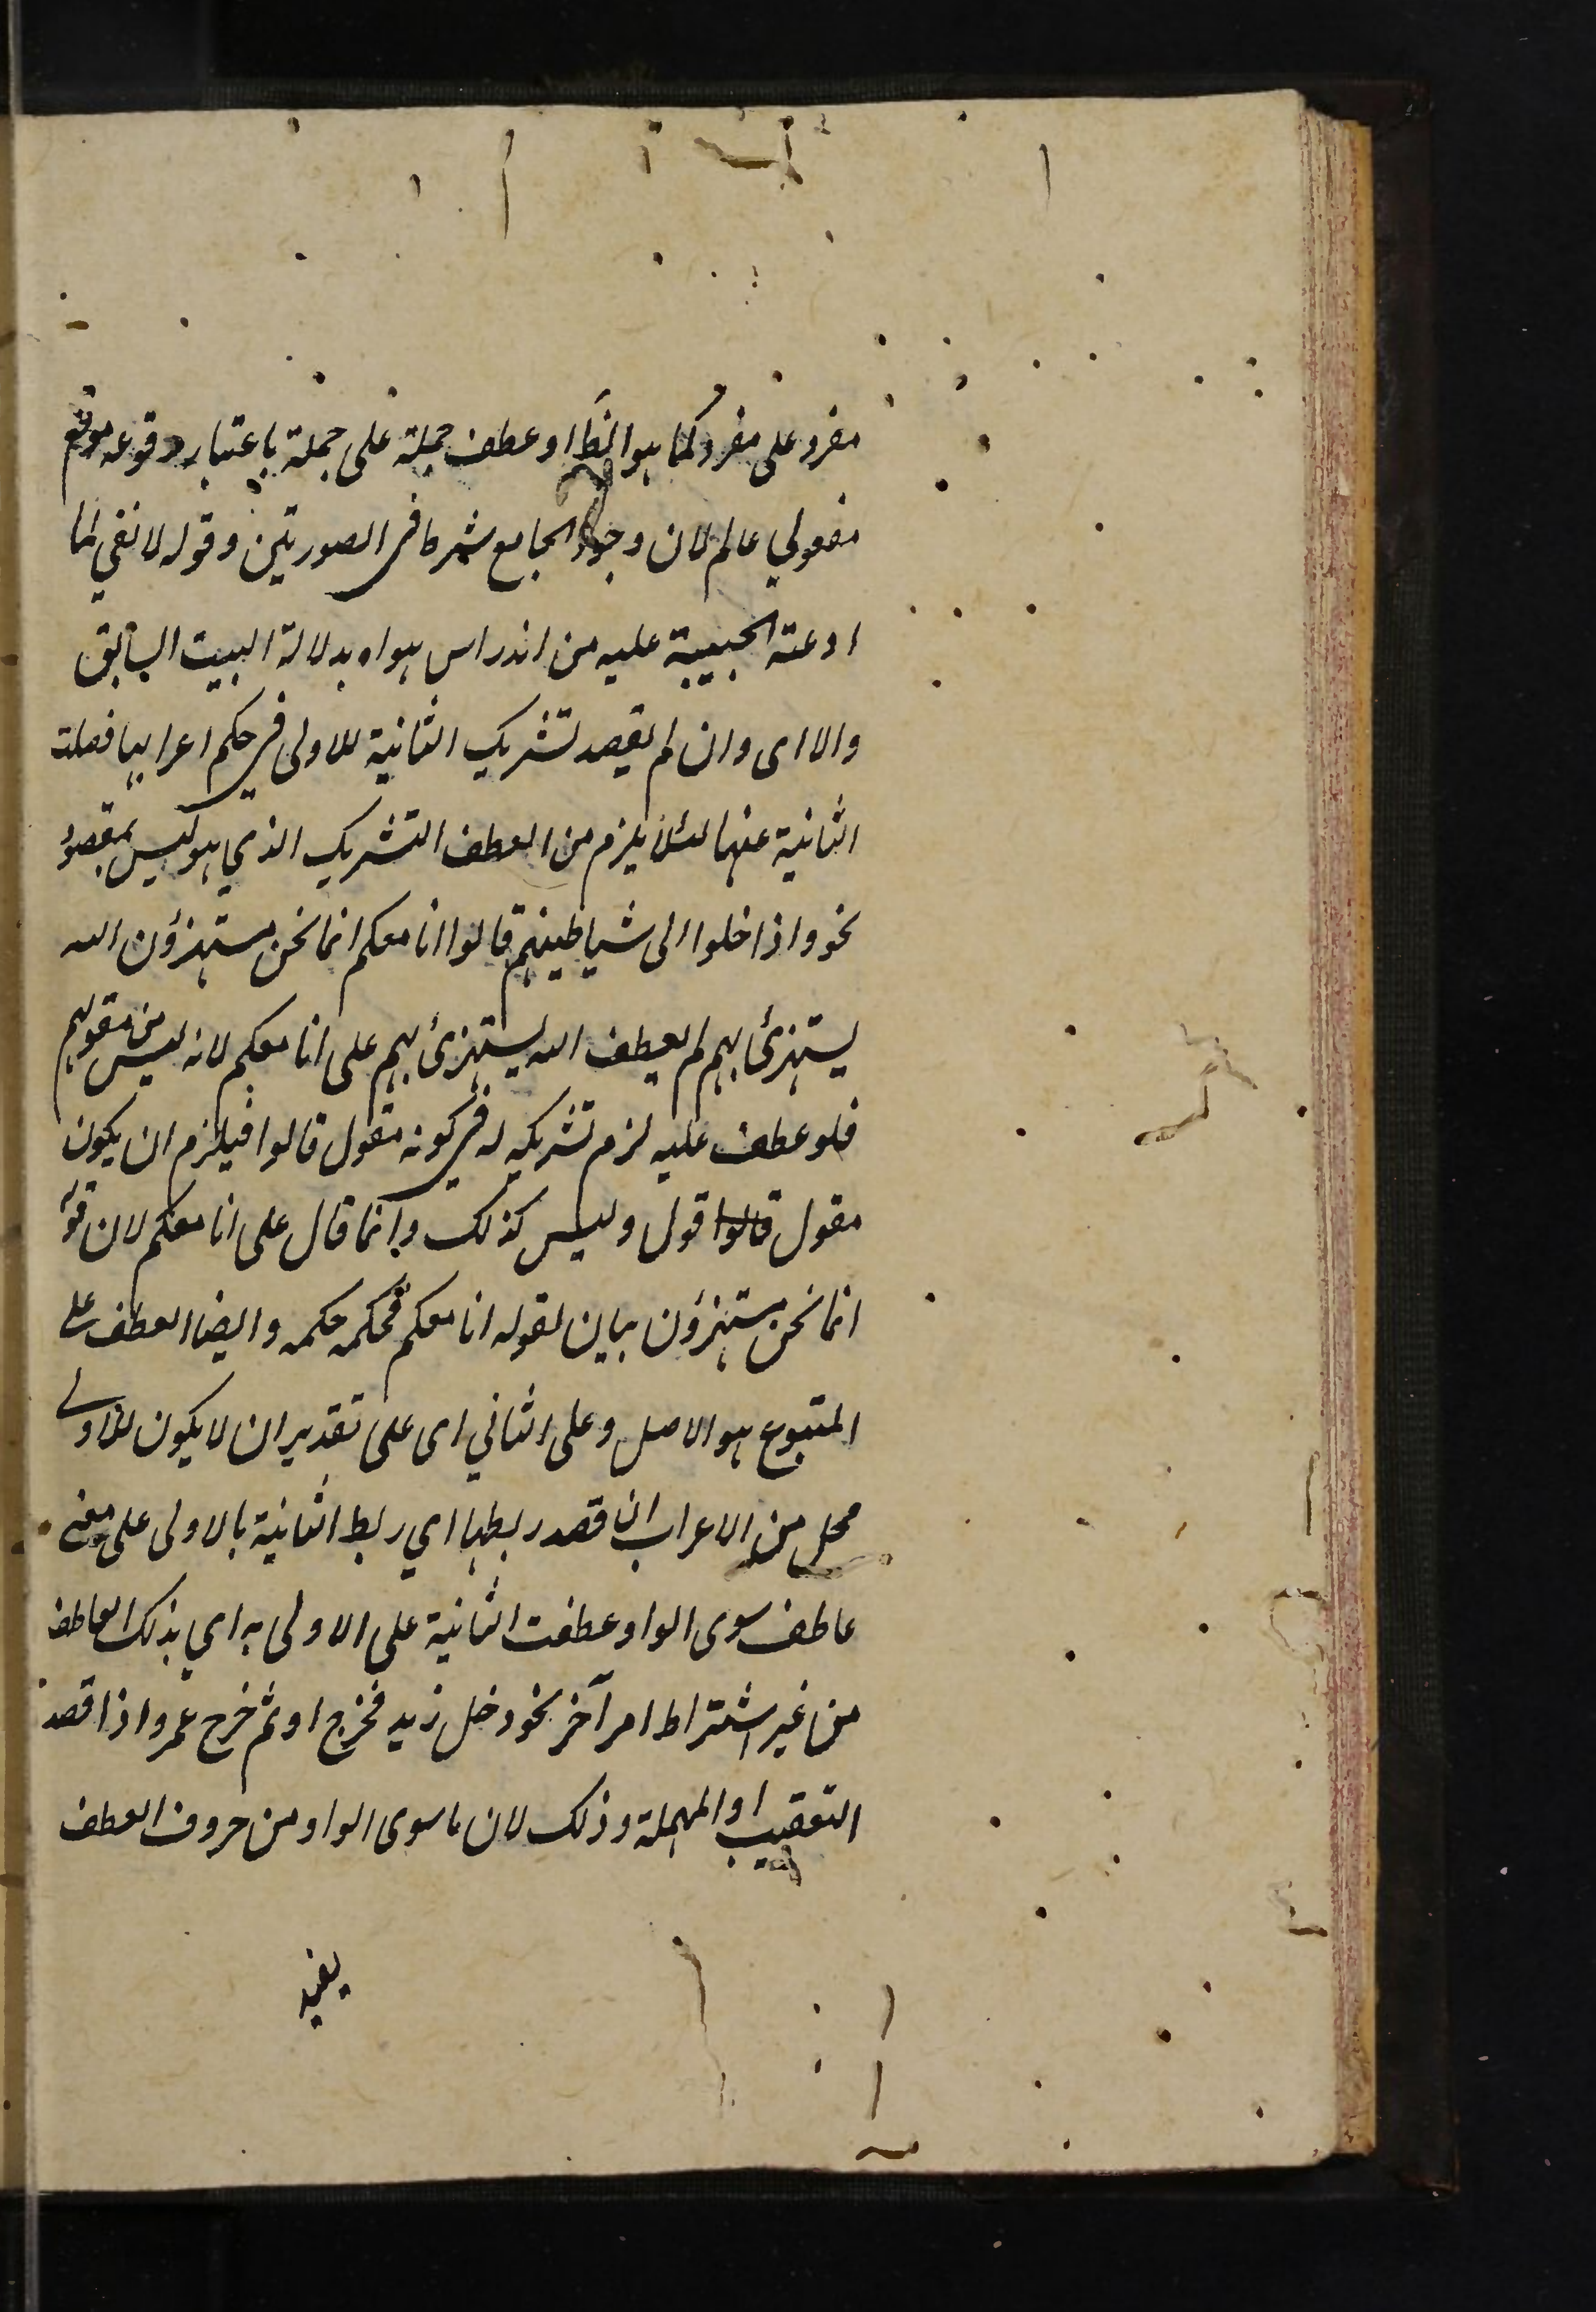 مفرد على مفرد كما هو الظ او عطف جملة على جملة باعتبار وقوعه موقع
مفعولي عالم لان وجود الجامع شرط في الصورتين وقوله لا نفي لما
ادعته الحبيبة عليه من اندراس هواه بدلالة البيت السابق
والا اى وان لم يقصد تشريك الثانية للاولى في حكم اعرابها فصلت
الثانية عنها لئلا يلزم من العطف التشريك الذي هو ليس بمقصود
نحو واذا خلوا الى شياطينهم قالوا انا معكم انما نحن مستهزؤن الله
يستهزئ بهم لم يعطف الله يستهزئ بهم على انا معكم لانه ليس من مقولهم
فلو عطف عليه لزم تشريكه له في كونه مقول قالوا فيلزم ان يكون
مقول قالوا قول وليس كذلك وانما قال على انا معكم لان قوله
انما نحن مستهزؤن بيان لقوله انا معكم فحكمه حكمه وايضا العطف على
المتبوع هو الاصل وعلى الثاني اى على تقدير ان لا يكون للاولى
محل من الاعراب ان قصد ربطها اي ربط الثانية بالاولى على معنى
عاطف سوى الواو عطفت الثانية على الاولى به اي بذلك العاطف
من غير اشتراط امر آخر نحو دخل زيد فخرج او ثم خرج عمرو اذا قصد
التعقيب او المهملة وذلك لان ما سوى الواو من حروف العطف
يفيد